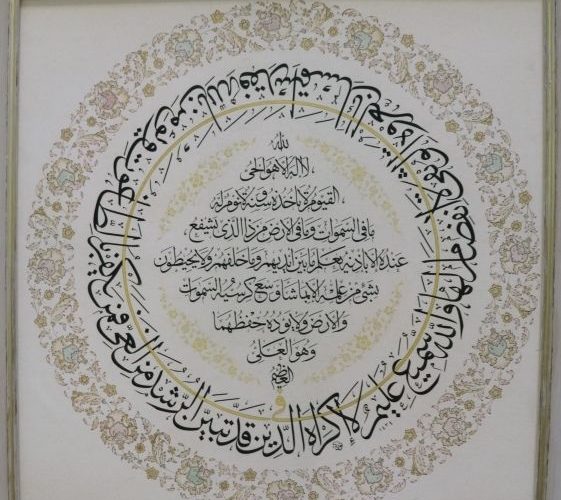 الله
لا اله الا هو الحى
القيوم لا تأخذه سنة ولا نوم له
ما فى السموات وما فى الارض من ذا الذى يشفع
عنده الا باذنه يعلم ما بين ايديهم وما خلفهم ولا يحيطون
بشئ من علمه الا بما شاء وسع كرسيه السموات
والارض ولا يؤده حفظهما
وهو العلى
العظيم
لا إكراه فى الدين قد تبين الرشد من الغى فمن يكفر بالطاغوت ويؤمن بالله فقد استمسك بالعروة الوثقى لا انفصام لها والله سميع عليم